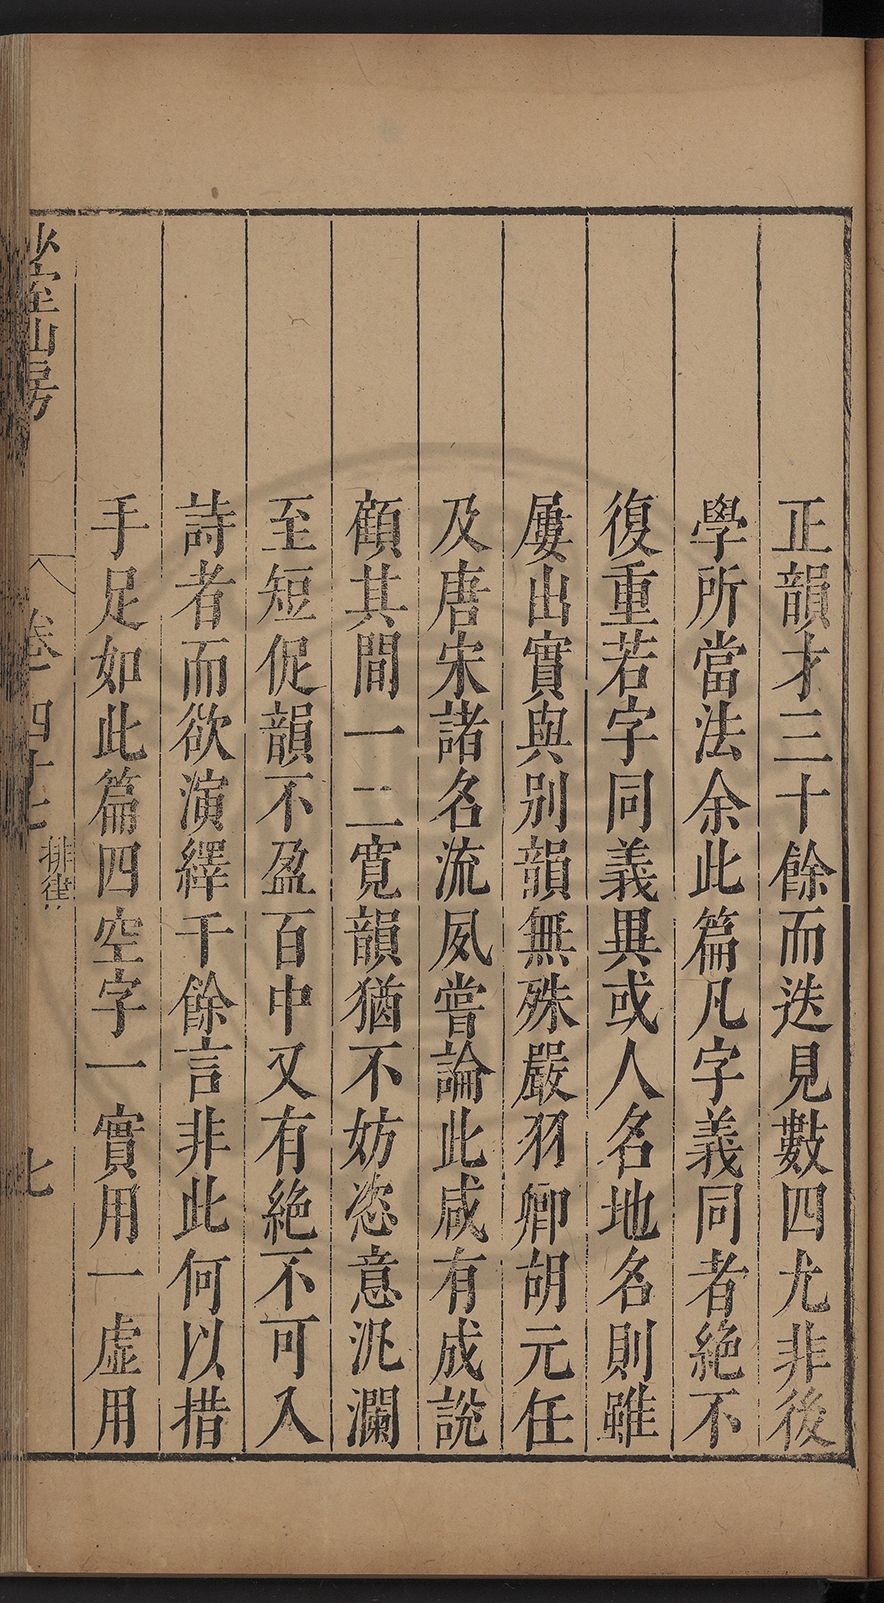 正韻才三十餘而迭見數四尤非後
學所當法余此篇凡字義同者絶不
復重若字同義異或人名地名則雖
屢出實與別韻無殊嚴羽卿胡元任
及唐宋諸名流夙嘗論此咸有成說
顧其間一二寬韻猶不妨恣意汎瀾
至短促韻不盈百中又有絶不可入
詩者而欲演繹千餘言非此何以措
手足如此篇四空字一實用一虛用
少室山房
卷四十七
排律
七